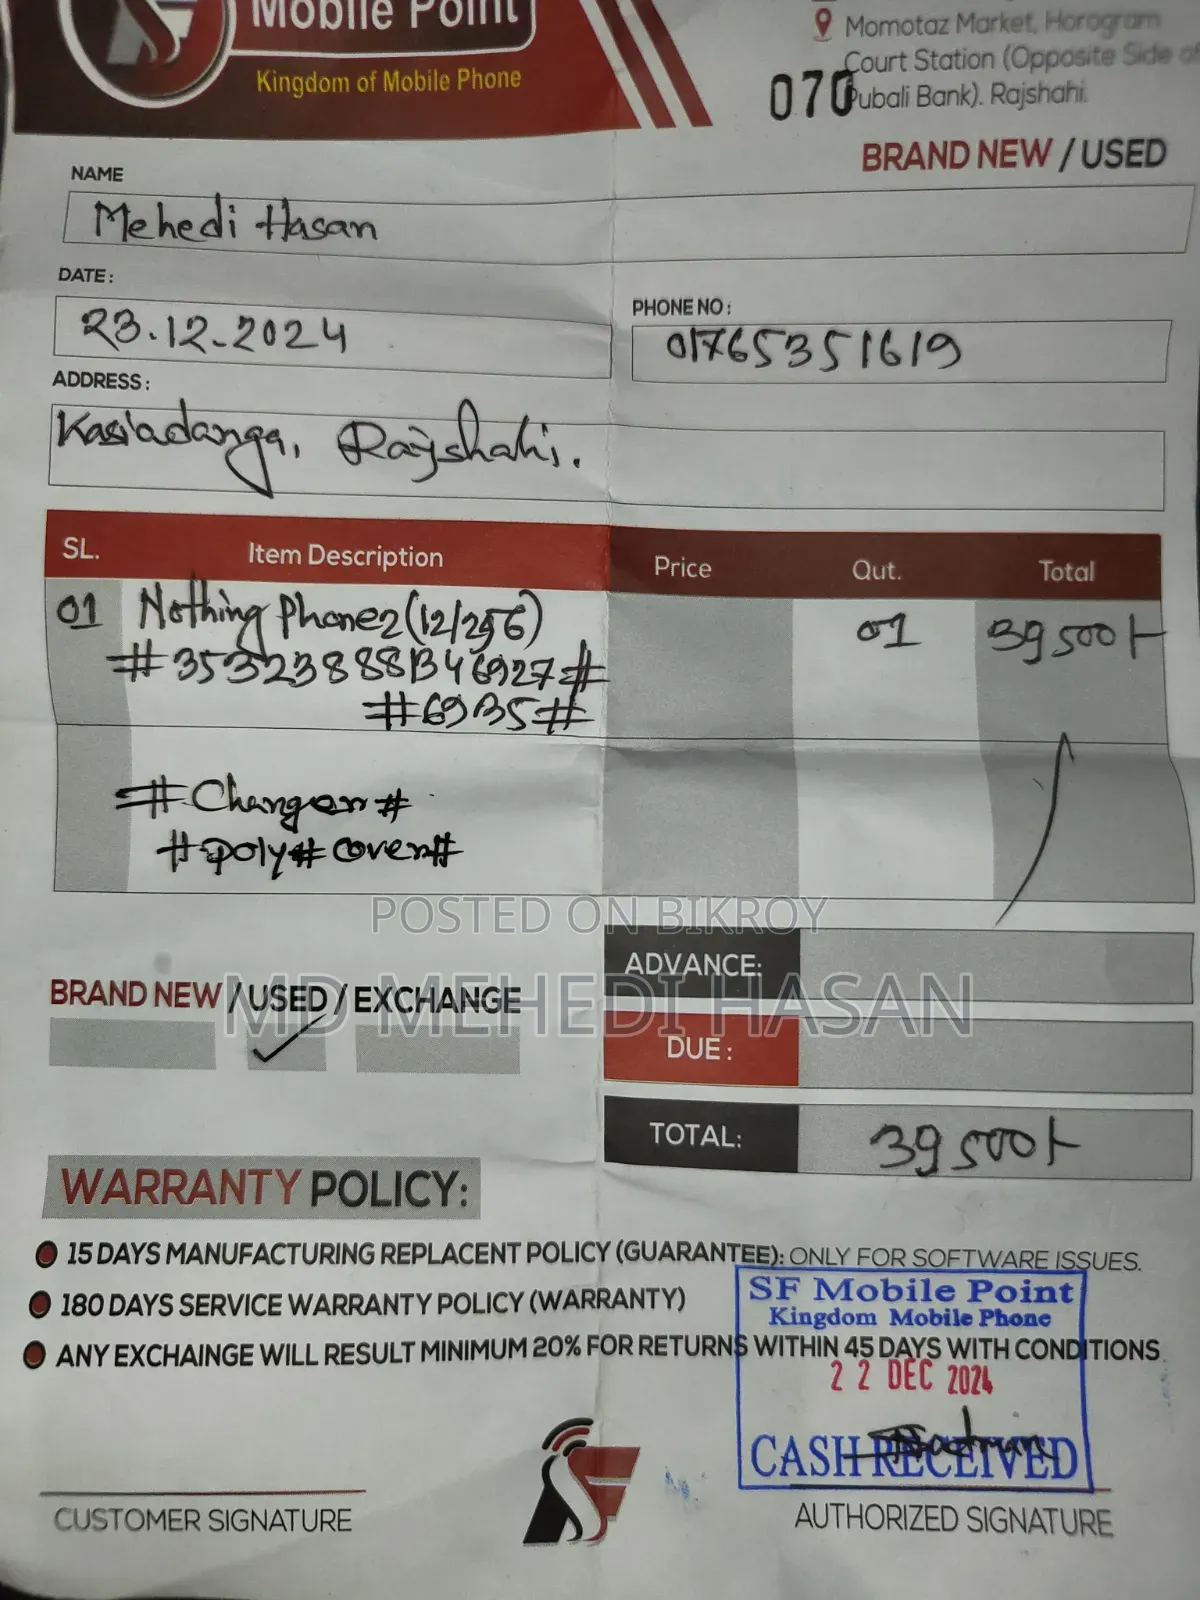 Mobile Point
Kingdom of Mobile Phone
Momotaz Market, Horogram
Court Station (Opposite Side of
Pubali Bank). Rajshahi.
070
BRAND NEW / USED
NAME
Mehedi Hasan
DATE:
23.12.2024
PHONE NO:
01765351619
ADDRESS:
Kasiadanga, Rajshahi.
SL. Item Description Price Qut. Total
01 Nothing Phone2 (12/256) 01 39500/-
#353238881346927#
#6935#
#Changeon#
#poly#cover#
POSTED ON BIKROY
MD MEHEDI HASAN
ADVANCE:
BRAND NEW / USED / EXCHANGE
DUE:
TOTAL: 39500/-
WARRANTY POLICY:
15 DAYS MANUFACTURING REPLACENT POLICY (GUARANTEE): ONLY FOR SOFTWARE ISSUES.
180 DAYS SERVICE WARRANTY POLICY (WARRANTY)
ANY EXCHAINGE WILL RESULT MINIMUM 20% FOR RETURNS WITHIN 45 DAYS WITH CONDITIONS.
SF Mobile Point
Kingdom Mobile Phone
22 DEC 2024
CASH RECEIVED
CUSTOMER SIGNATURE
AUTHORIZED SIGNATURE